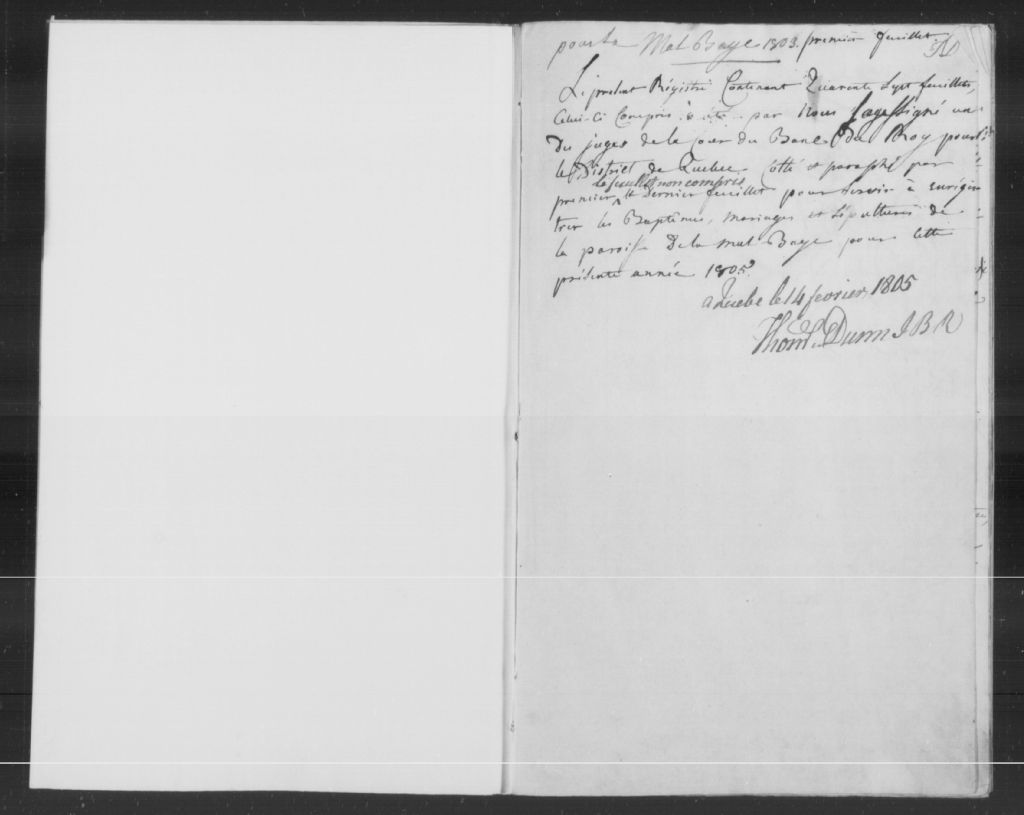 pour la Mal Baye 1805. premier feuillet.
Le présent Régistre Contenant Quarante Sept feuillets,
Celui-Ci Compris a été par Nous Sousigné un
Du juges de la Cour du Banc Du Roy pour
le District de Quebec Cotté et paraphé par
le feuillet non compris
premier et Dernier feuillet pour servir à enrégis
trer les Baptêmes, mariages et sépultures de
la paroisse De la mal Baye pour cette
présente année 1805.
a Quebe le 14 fevrier, 1805
Thom. Dunn J B R